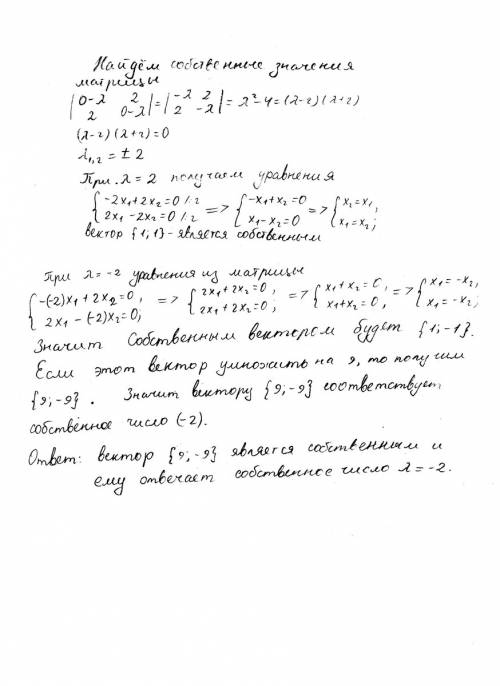 Найдём собственные значения
матрицы
|0-λ 2; 2 0-λ| = |-λ 2; 2 -λ| = λ²-4 = (λ-2)(λ+2)
(λ-2)(λ+2)=0
λ₁,₂ = ± 2
При λ = 2 получаем уравнения
{-2x₁+2x₂=0 /:2; 2x₁-2x₂=0 /:2 => {-x₁+x₂=0; x₁-x₂=0 => {x₂=x₁, x₁=x₂;
вектор {1;1} - является собственным
При λ=-2 уравнения из матрицы
{-(-2)x₁+2x₂=0, 2x₁-(-2)x₂=0; => {2x₁+2x₂=0, 2x₁+2x₂=0; => {x₁+x₂=0, x₁+x₂=0, => {x₁=-x₂, x₁=-x₂;
Значит собственным вектором будет {1;-1}.
Если этот вектор умножить на 9, то получим
{9;-9}. Значит вектору {9;-9} соответствует
собственное число (-2).
Ответ: вектор {9;-9} является собственным и
ему отвечает собственное число λ=-2.